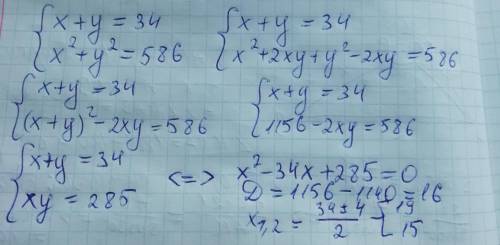 {x+y=34
{x²+y²=586
{x+y=34
{x²+2xy+y²-2xy=586
{x+y=34
{(x+y)²-2xy=586
{x+y=34
{1156-2xy=586
{x+y=34
{xy=285
<=> x²-34x+285=0
D=1156-1140=16
x₁,₂=(34±4)/2-{19
15